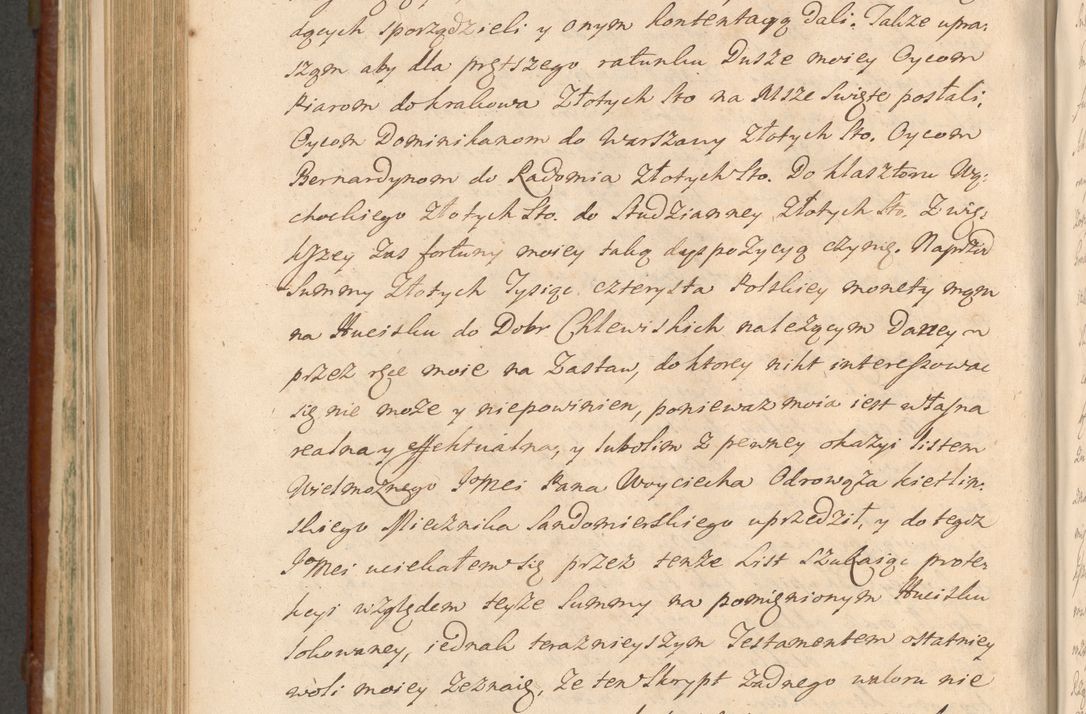 dących sporządzieli y onym kontentacyą dali. Także upra:
szam aby dla prętszego ratunku Dusze moiey Oycom
Piarom do krakowa Złotych sto na Msze Święte posłali.
Oycom Dominikanom do Warszawy Złotych sto. Oycom
Bernardynom do Radomia Złotych sto. Do klasztoru Wą:
chockiego Złotych sto. do Studzianney Złotych sto. Z wię:
kszey zas fortuny moiey taką dyspozycyą czynię. Naprzod
Summy Złotych Tysiąc czterysta Polskiey monety mam
na Hucisku do Dobr Chlewiskich należącym Daney
przez ręce moie na Zastaw, do ktorey nikt interessować
się nie może y niepowinien, ponieważ moia iest własna
realna y effektualna, y lubolim z pewney okazyi listem
Wielmożnego JMci Pana Woyciecha Odrowąża kietlin:
skiego Miecznika Sandomierskiego uprzedził, y do tegoż
JMci uciekałem się przez tenże List szukaiąc prote:
kcyi względem teyże Summy na pomienionym Hucisku
lokowaney, iednak teraznieyszym Testamentem ostatniey
woli moiey zeznaię, że ten Skrypt żadnego waloru nie